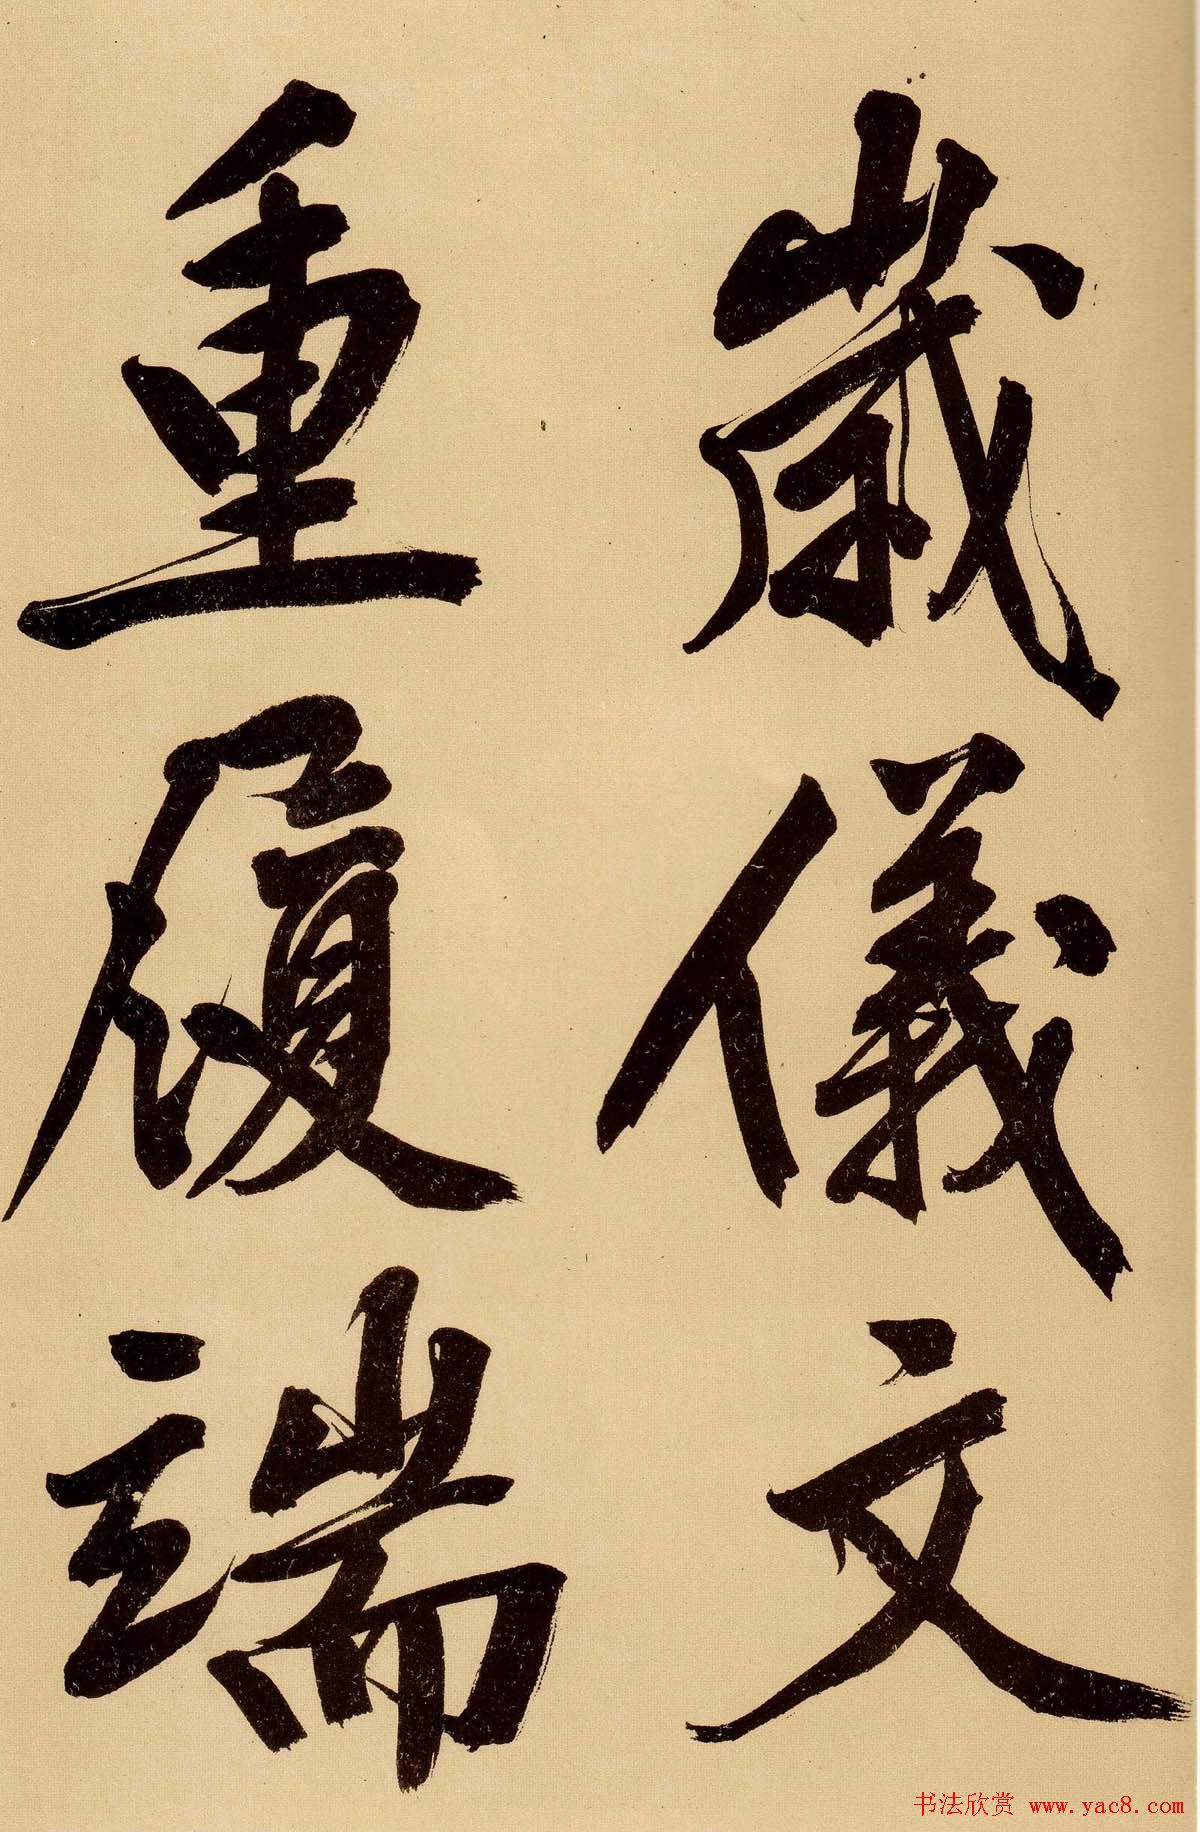 歲儀文
重履端
书法欣赏 www.yac8.com